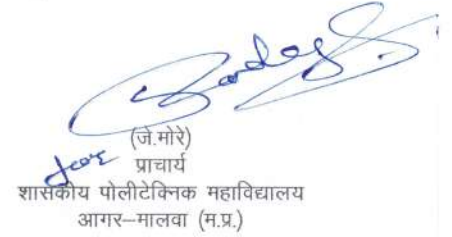 for
(जे.मोरे)
प्राचार्य
शासकीय पोलीटेक्निक महाविद्यालय
आगर–मालवा (म.प्र.)